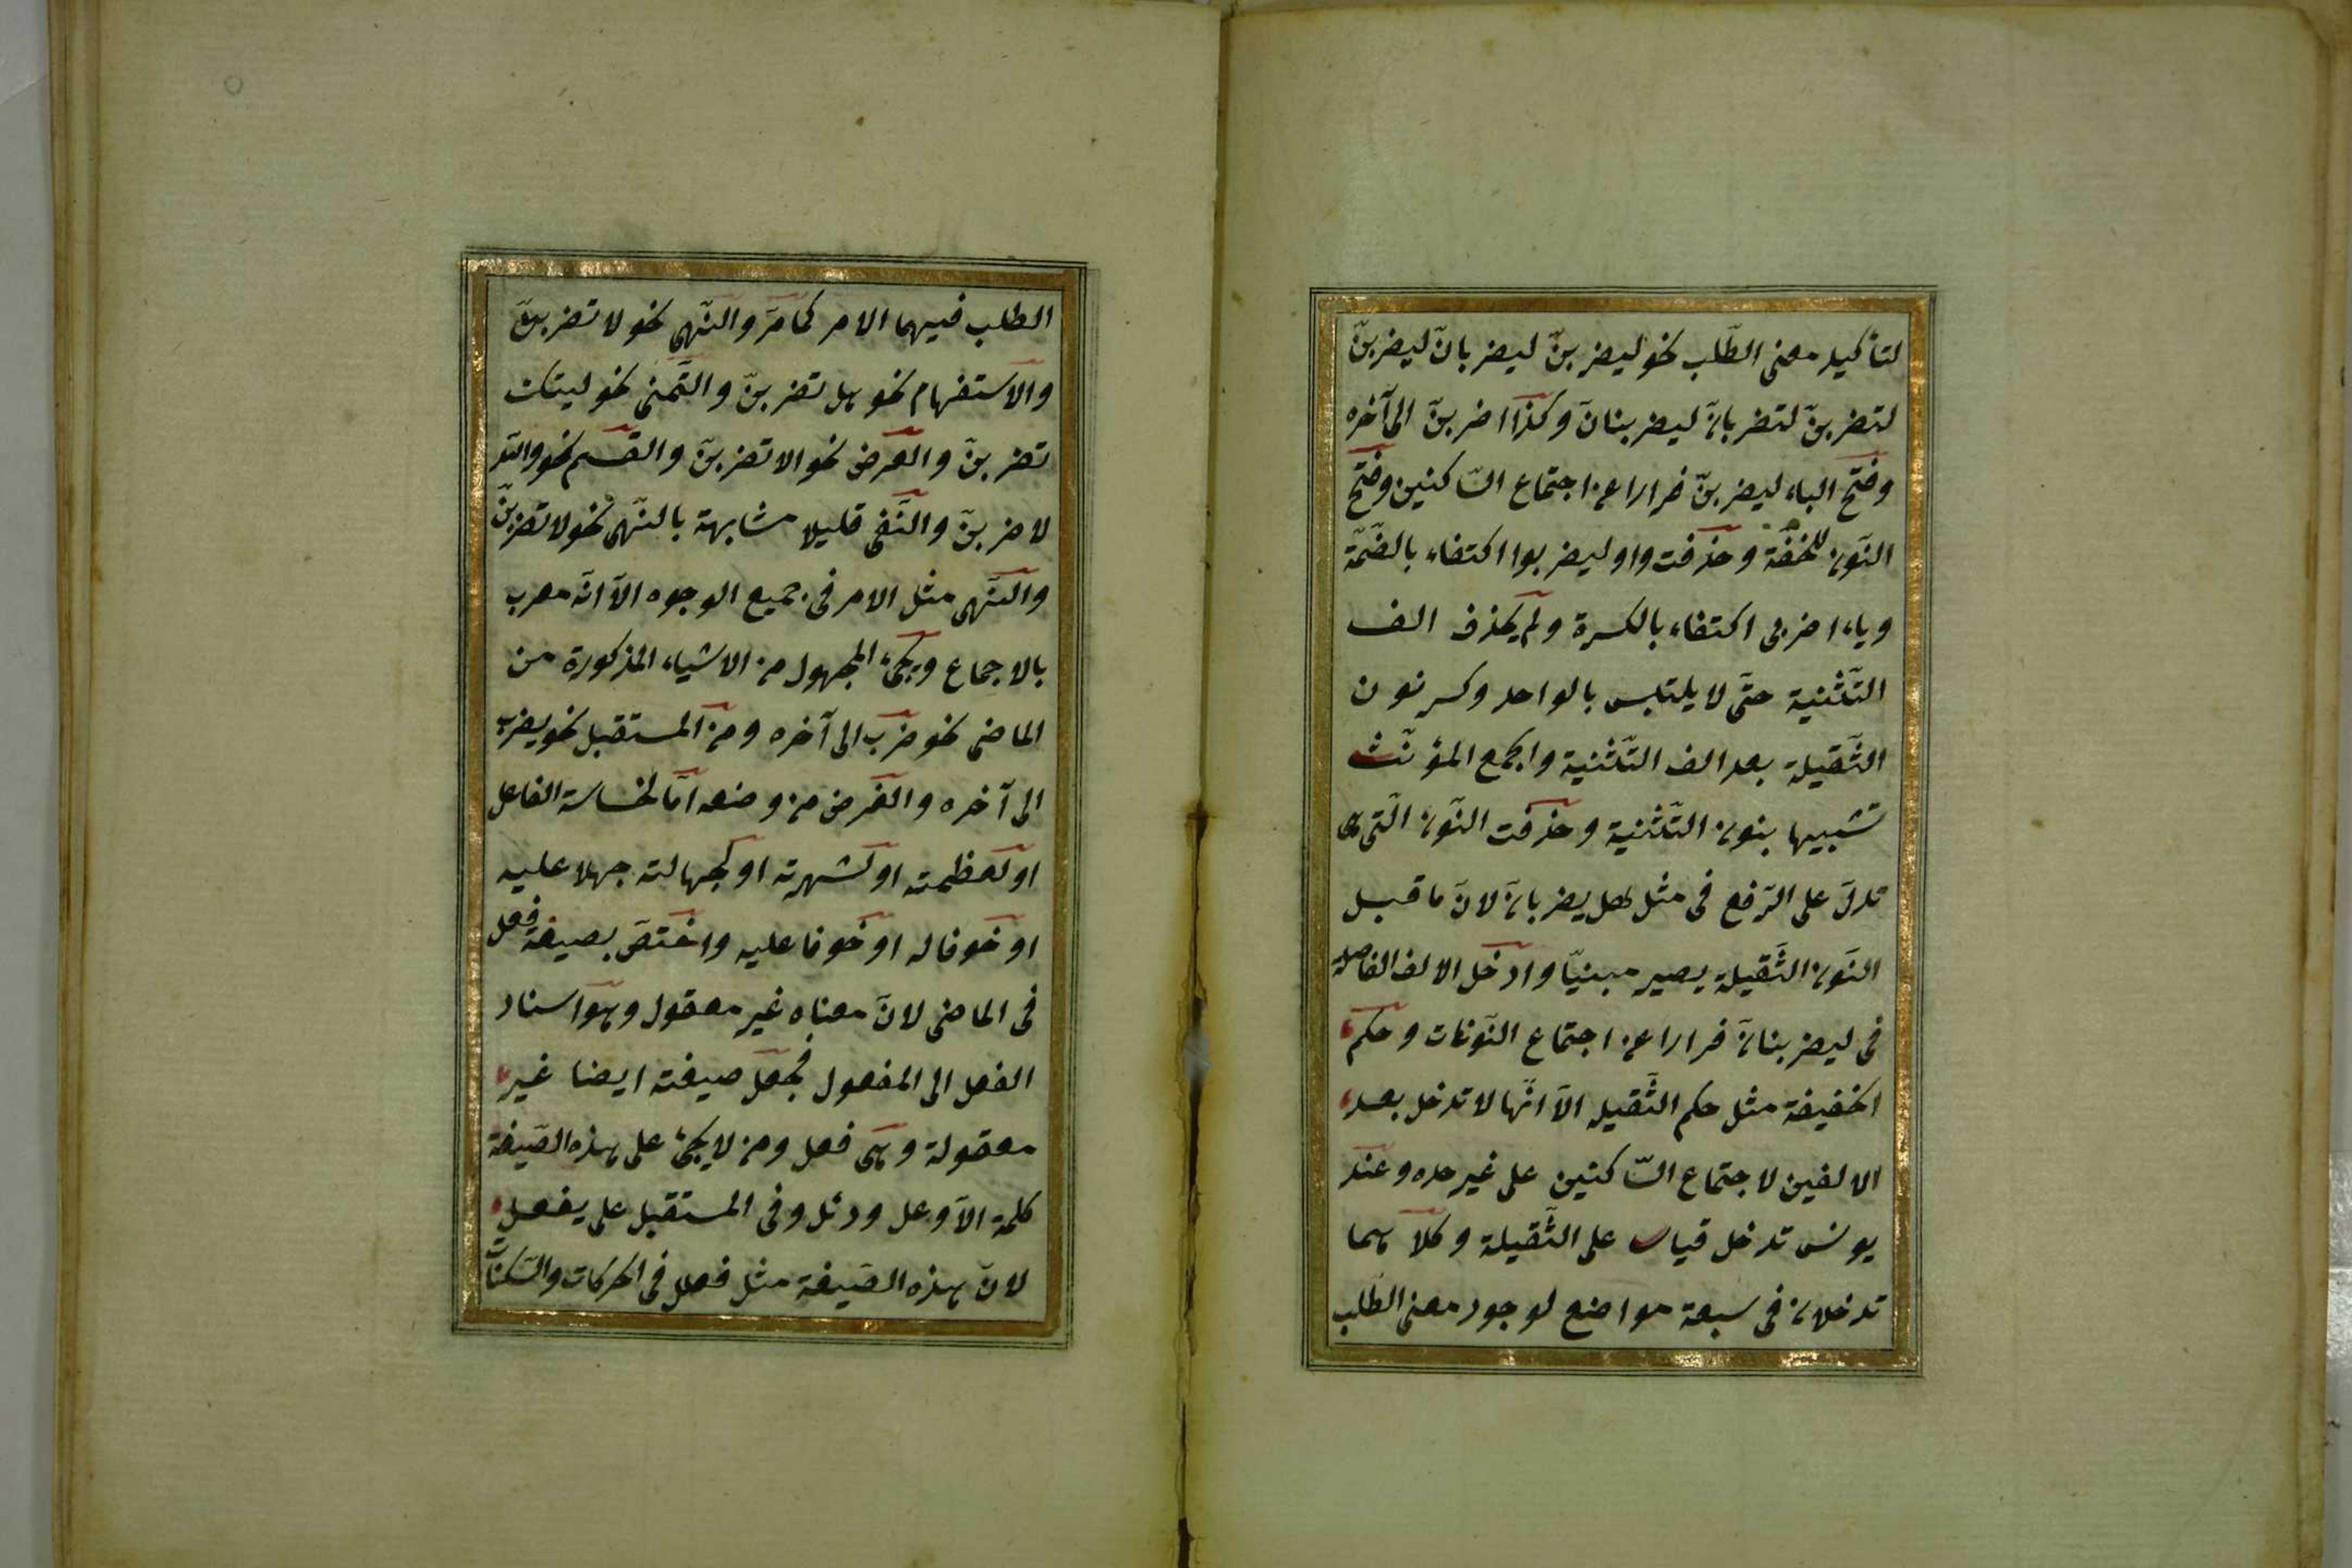 لتأكيد معنى الطّلب نحو ليضربنّ ليضربانّ ليضربنّ
لتضربنّ لتضربانّ ليضربنانّ وكذا اضربنّ الى آخره
وفتح الباء ليضربنّ فرارا عن اجتماع السّاكنين وفتح
النّون للخفّة وحذفت واو ليضربوا اكتفاء بالضّمّة
وياء اضربى اكتفاء بالكسرة ولم يحذف الف
التّثنية حتّى لا يلتبس بالواحد وكسر نون
الثّقيلة بعد الف التّثنية والجمع المؤنّث
تشبيها بنون التّثنية وحذفت النّون الّتى هى
تدلّ على الرّفع فى مثل هل يضربانّ لانّ ما قبل
النّون الثّقيلة يصير مبنيّا وادخل الالف الفاصلة
فى ليضربنانّ فرارا عن اجتماع النّونات وحكم
الخفيفة مثل حكم الثّقيلة الاّ انّها لا تدخل بعد
الالفين لاجتماع السّاكنين على غير حده وعند
يونس تدخل قياسا على الثّقيلة وكلاهما
تدخلان فى سبعة مواضع لوجود معنى الطّلب
الطلب فيهما الامر كما مرّ والنّهى نحو لا تضربنّ
والاستفهام نحو هل تضربنّ والتّمنى نحو ليتك
تضربنّ والعرض نحو الا تضربنّ والقسم نحو والله
لاضربنّ والنّفى قليلا مشابهة بالنّهى نحو لا تضربنّ
والنّهى مثل الامر فى جميع الوجوه الاّ انّه معرب
بالاجماع ويجئ المجهول من الاشياء المذكورة من
الماضى نحو ضرب الى آخره ومن المستقبل نحو يضرب
الى آخره والغرض من وضعه امّا لخساسة الفاعل
او لعظمته او لشهرته او لجهالته جهلا عليه
او خوفا له او خوفا عليه واختصّ بصيغة فعل
فى الماضى لانّ معناه غير معقول وهو اسناد
الفعل الى المفعول فجعل صيغته ايضا غير
معقولة وهى فعل ومن لا يجئ على هذه الصّيغة
كلمة الاّ وعل ودئل وفى المستقبل على يفعل
لانّ هذه الصّيغة مثل فعلل فى الحركات والسّكنات